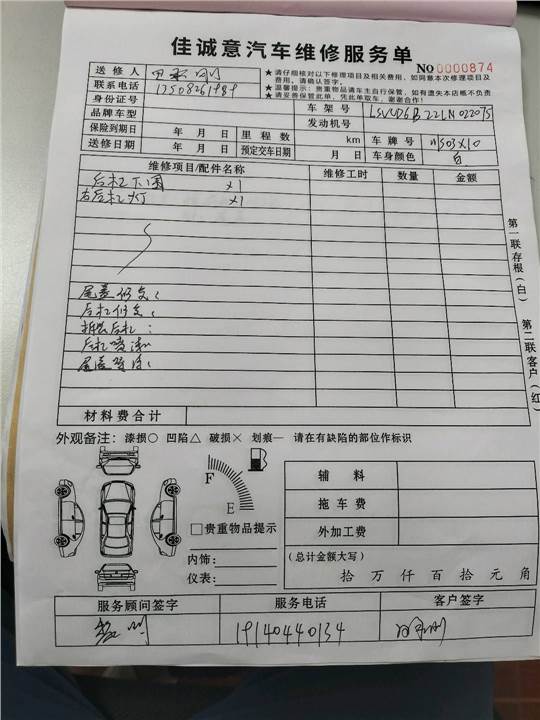 佳诚意汽车维修服务单
NO 0000874
送修人
联系电话
身份证号
★请仔细核对以下修理项目及相关费用，如同意本次修理项目及费用，请确认签字。
★温馨提示：贵重物品请车主自行保管，如有遗失本店概不负责
★请妥善保管此单，凭此单取车，谢谢合作！
品牌车型 车架号
发动机号
保险到期日 年 月 日 里程数 km 车牌号
送修日期 年 月 日 预定交车日期 月 日 车身颜色 白
维修项目/配件名称 维修工时 数量 金额
后杠下围 x1
右后杠灯 x1
尾盖修复：
后杠修复：
拆装后杠：
后杠喷漆
尾盖喷漆：
材料费合计
第一联存根（白）
第二联客户（红）
外观备注：漆损○ 凹陷△ 破损× 划痕— 请在有缺陷的部位作标识
F
E
□贵重物品提示
内饰：
仪表：
辅料
拖车费
外加工费
（总计金额大写）
拾 万 仟 百 拾 元 角
服务顾问签字 服务电话 客户签字
19140440134